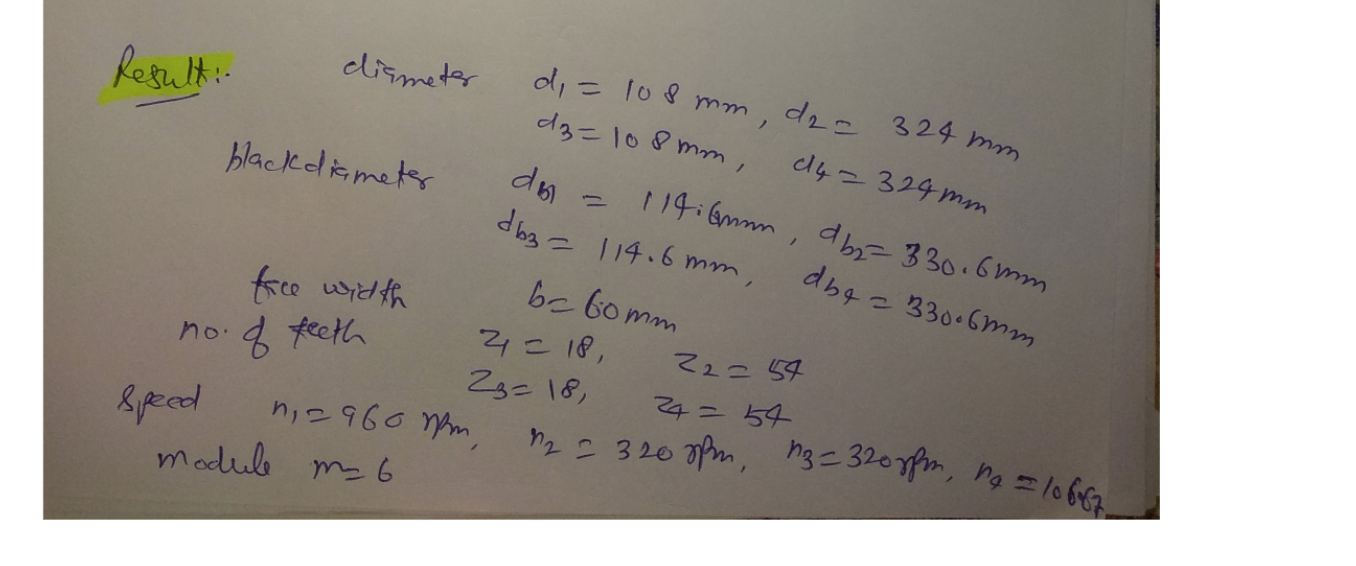 Result:-
diameter d1 = 108 mm, d2 = 324 mm
d3 = 108 mm, d4 = 324 mm
blackdiameter db1 = 114.6mm, db2 = 330.6mm
db3 = 114.6 mm, db4 = 330.6mm
face width b = 60 mm
no. of teeth z1 = 18, z2 = 54
z3 = 18, z4 = 54
speed n1 = 960 rpm, n2 = 320 rpm, n3 = 320 rpm, n4 = 106.67
module m = 6